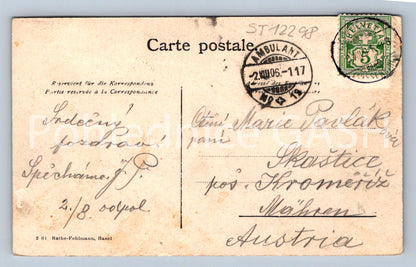 ST12298
Carte postale.
HELVETIA
5
AMBULANT
2.VIII.06.-1 17
No 19
Reserviert für die Korrespondenz
Partie réservée à la Correspondance
Srdečný
pozdrav
Spěcháme J. P.
2/8. odpol.
Ctění Marie Pavlák
paní
Skaštice
pos. Kroměříž
Mähren
Austria
2 61 Rathe-Fehlmann, Basel